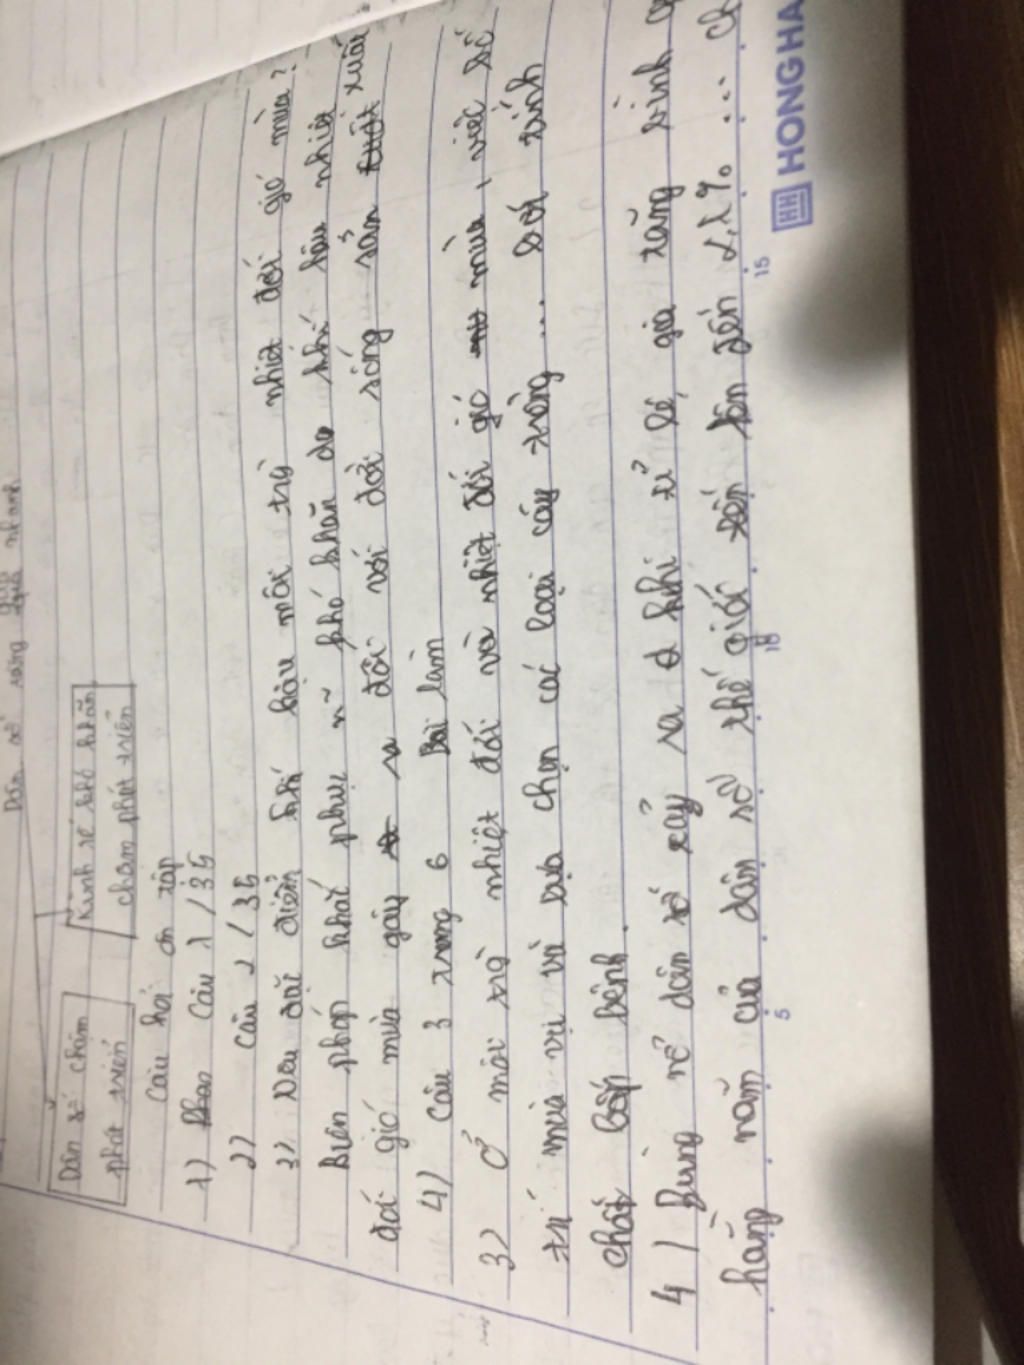 Dân số tăng nhanh
Dân số chậm
phát triển
Kinh tế khó khăn
chậm phát triển
Câu hỏi ôn tập
1) Câu 1 / 35
2) Câu 2 / 35
3) Nêu đặc điểm khí hậu môi trg nhiệt đới gió mùa?
Biện pháp khắc phục n~ khó khăn do khí hậu nhiệt
đới gió mùa gây ra đối với đời sống sản xuất
4) Câu 3 trong 6 Bài làm
3) Ở môi trg nhiệt đới và nhiệt đới gió mùa, việc bố
trí mùa vụ và lựa chọn các loại cây trồng ... bởi tính
chất bệnh.
4) Bùng nổ dân số xảy ra khi tỉ lệ gia tăng bình
hằng năm của dân số thế giới lên đến 2,1% ...
5
10
15
HH HONG HA